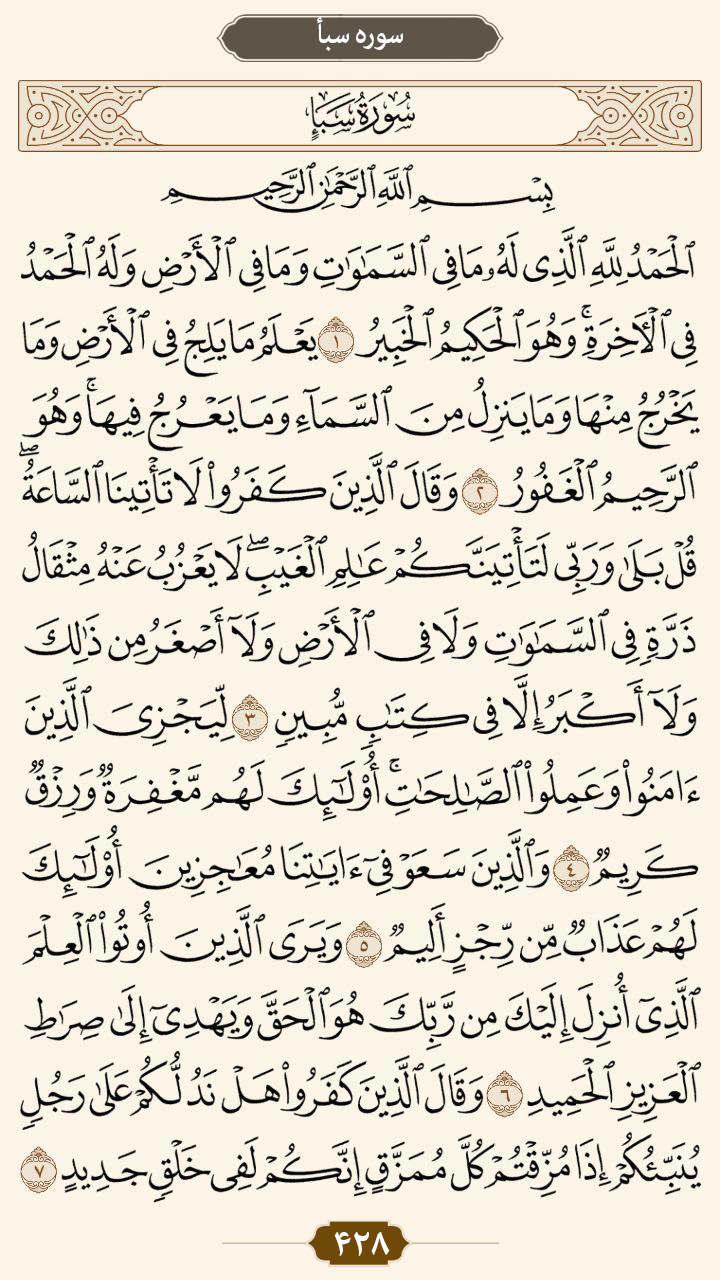 سوره سبأ
سُورَةُ سَبَإٍ
بِسْمِ ٱللَّهِ ٱلرَّحْمَٰنِ ٱلرَّحِيمِ
ٱلْحَمْدُ لِلَّهِ ٱلَّذِى لَهُۥ مَا فِى ٱلسَّمَٰوَٰتِ وَمَا فِى ٱلْأَرْضِ وَلَهُ ٱلْحَمْدُ
فِى ٱلْءَاخِرَةِ ۚ وَهُوَ ٱلْحَكِيمُ ٱلْخَبِيرُ ١ يَعْلَمُ مَا يَلِجُ فِى ٱلْأَرْضِ وَمَا
يَخْرُجُ مِنْهَا وَمَا يَنزِلُ مِنَ ٱلسَّمَآءِ وَمَا يَعْرُجُ فِيهَا ۚ وَهُوَ
ٱلرَّحِيمُ ٱلْغَفُورُ ٢ وَقَالَ ٱلَّذِينَ كَفَرُوا۟ لَا تَأْتِينَا ٱلسَّاعَةُ ۖ
قُلْ بَلَىٰ وَرَبِّى لَتَأْتِيَنَّكُمْ عَٰلِمِ ٱلْغَيْبِ ۖ لَا يَعْزُبُ عَنْهُ مِثْقَالُ
ذَرَّةٍ فِى ٱلسَّمَٰوَٰتِ وَلَا فِى ٱلْأَرْضِ وَلَآ أَصْغَرُ مِن ذَٰلِكَ
وَلَآ أَكْبَرُ إِلَّا فِى كِتَٰبٍ مُّبِينٍ ٣ لِّيَجْزِىَ ٱلَّذِينَ
ءَامَنُوا۟ وَعَمِلُوا۟ ٱلصَّٰلِحَٰتِ ۚ أُو۟لَٰٓئِكَ لَهُم مَّغْفِرَةٌ وَرِزْقٌ
كَرِيمٌ ٤ وَٱلَّذِينَ سَعَوْ فِىٓ ءَايَٰتِنَا مُعَٰجِزِينَ أُو۟لَٰٓئِكَ
لَهُمْ عَذَابٌ مِّن رِّجْزٍ أَلِيمٌ ٥ وَيَرَى ٱلَّذِينَ أُوتُوا۟ ٱلْعِلْمَ
ٱلَّذِىٓ أُنزِلَ إِلَيْكَ مِن رَّبِّكَ هُوَ ٱلْحَقَّ وَيَهْدِىٓ إِلَىٰ صِرَٰطِ
ٱلْعَزِيزِ ٱلْحَمِيدِ ٦ وَقَالَ ٱلَّذِينَ كَفَرُوا۟ هَلْ نَدُلُّكُمْ عَلَىٰ رَجُلٍ
يُنَبِّئُكُمْ إِذَا مُزِّقْتُمْ كُلَّ مُمَزَّقٍ إِنَّكُمْ لَفِى خَلْقٍ جَدِيدٍ ٧
۴۲۸